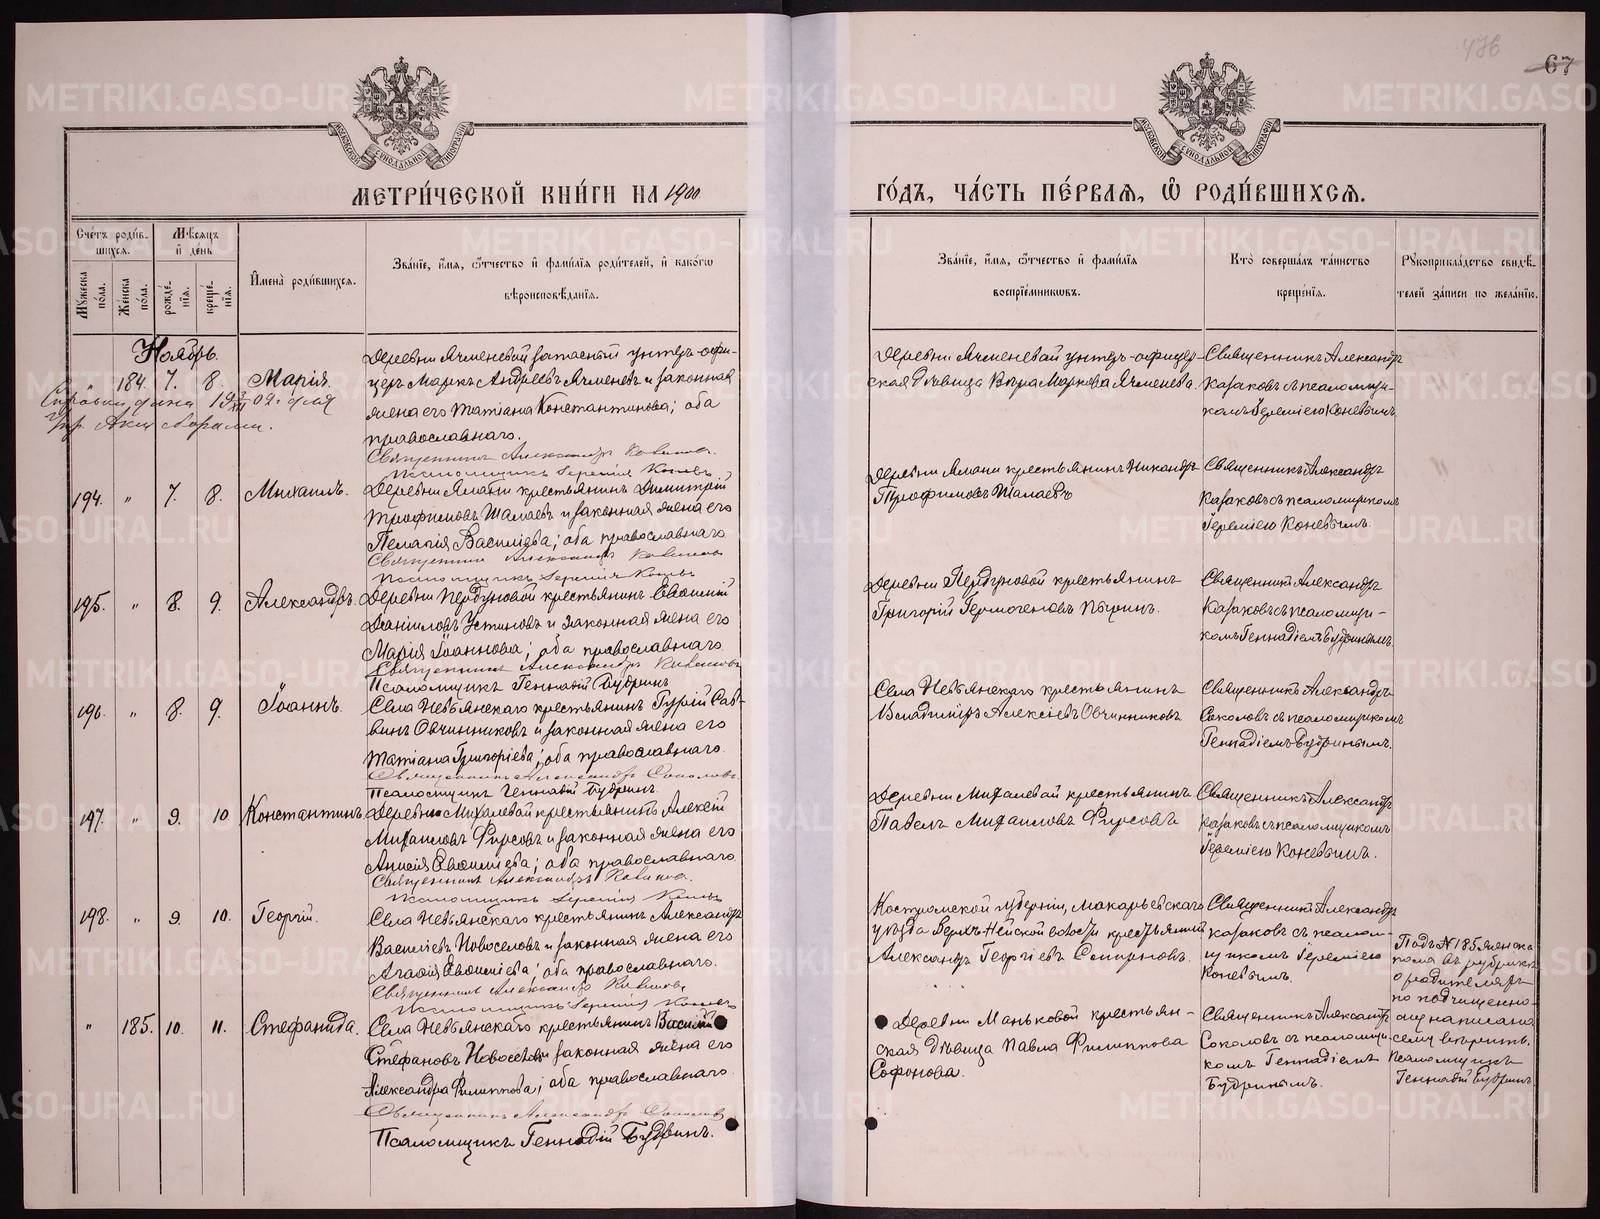 436
67
МЕТРИ́ЧЕСКОЙ КНИ́ГИ НА 1900
ГО́ДЪ, ЧА́СТЬ ПЕ́РВАЯ, Ѡ РОДИ́ВШИХСЯ.
Сче́тъ роди́в-
шихся.
Мѣ́сяцъ
и де́нь
Му́жеска по́ла.
Же́нска по́ла.
рожде́-
нія.
креще́-
нія.
Имена̀ роди́вшихся.
Зва́ніе, и́мя, ѻ҆́тчество и҆ фами́лія роди́телей, и҆ како́гѡ
вѣроисповѣ́данія.
Зва́ніе, и́мя, ѻ҆́тчество и҆ фами́лія
воспріе́мниковъ.
Кто̀ соверша́лъ та́инство
креще́нія.
Рꙋкоприкла́дство свидѣ́-
телей за́писи по жела́нію.
Ноябрь.
184. 7. 8. Марія.
Деревни Ячменевой запасный унтеръ-офи-
церъ Маркъ Андреевъ Ячменевъ и законная
жена его Татіана Константинова; оба
православнаго.
Священникъ Александръ Казаковъ.
Псаломщикъ Іеремія Коневъ
Деревни Ячменевой унтеръ-офицер-
ская дѣвица Вѣра Маркова Ячменева.
Священникъ Александръ
Казаковъ съ псаломщи-
комъ Іереміею Коневымъ
194. " 7. 8. Михаилъ.
Деревни Ялани крестьянинъ Димитрій
Трофимовъ Шалаевъ и законная жена его
Пелагія Василіева; оба православнаго
Священникъ Александръ Казаковъ
Псаломщикъ Іеремія Коневъ
Деревни Ялани крестьянинъ Никандръ
Трофимовъ Шалаевъ
Священникъ Александръ
Казаковъ съ псаломщикомъ
Іереміею Коневымъ.
195. " 8. 9. Александръ.
крестьянинъ Евѳимій
Даніиловъ Устиновъ и законная жена его
Марія Іоаннова; оба православнаго
Священникъ Александръ Казаковъ
Псаломщикъ Геннадій Будринъ
крестьянинъ
Григорій Гермогеновъ
Священникъ Александръ
Казаковъ съ псаломщи-
комъ Геннадіемъ Будринымъ.
196. " 8. 9. Іоаннъ.
Села Невьянскаго крестьянинъ Гурій Сав-
винъ Овчинниковъ и законная жена его
Татіана Григоріева; оба православнаго.
Священникъ Александръ Соколовъ.
Псаломщикъ Геннадій Будринъ.
Села Невьянскаго крестьянинъ
Владиміръ Алексіевъ Овчинниковъ
Священникъ Александръ
Соколовъ съ псаломщикомъ
Геннадіемъ Будринымъ.
197. " 9. 10 Константинъ.
Деревни Михалевой крестьянинъ Алексій
Михаиловъ Фирсовъ и законная жена его
Анисія Евѳиміева; оба православнаго
Священникъ Александръ Казаковъ.
Псаломщикъ Іеремія Коневъ
Деревни Михалевой крестьянинъ
Павелъ Михаиловъ Фирсовъ
Священникъ Александръ
Казаковъ съ псаломщикомъ
Іереміею Коневымъ.
198. " 9 10. Георгій.
Села Невьянскаго крестьянинъ Александръ
Василіевъ Новоселовъ и законная жена его
Агаѳія Евѳиміева; оба православнаго.
Священникъ Александръ Казаковъ
Псаломщикъ Іеремія Коневъ
Костромской губерніи, Макарьевскаго
уѣзда Верхъ-Нейской волости крестьянинъ
Александръ Георгіевъ Смирновъ.
Священникъ Александръ
Казаковъ съ псалом-
щикомъ Іереміею
Коневымъ.
Подъ № 185 женска
пола въ рубрикѣ
о родителяхъ
по подчищенно-
му написано
сему вѣрить.
Псаломщикъ
Геннадій Будринъ.
" 185. 10. 11. Стефанида.
Села Невьянскаго крестьянинъ Василій
Стефановъ Новоселовъ и законная жена его
Александра Филиппова; оба православнаго
Священникъ Александръ Соколовъ
Псаломщикъ Геннадій Будринъ.
Деревни Маньковой крестьян-
ская дѣвица Павла Филиппова
Софонова.
Священникъ Александръ
Соколовъ съ псаломщи-
комъ Геннадіемъ
Будринымъ.
METRIKI.GASO-URAL.RU